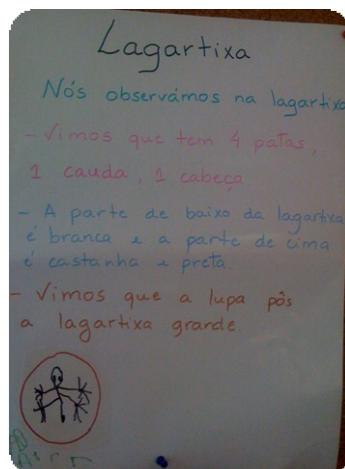 Lagartixa
Nós observámos na lagartixa
- Vimos que tem 4 patas,
1 cauda, 1 cabeça
- A parte de baixo da lagartixa
é branca e a parte de cima
é castanha e preta.
- Vimos que a lupa pôs
a lagartixa grande.